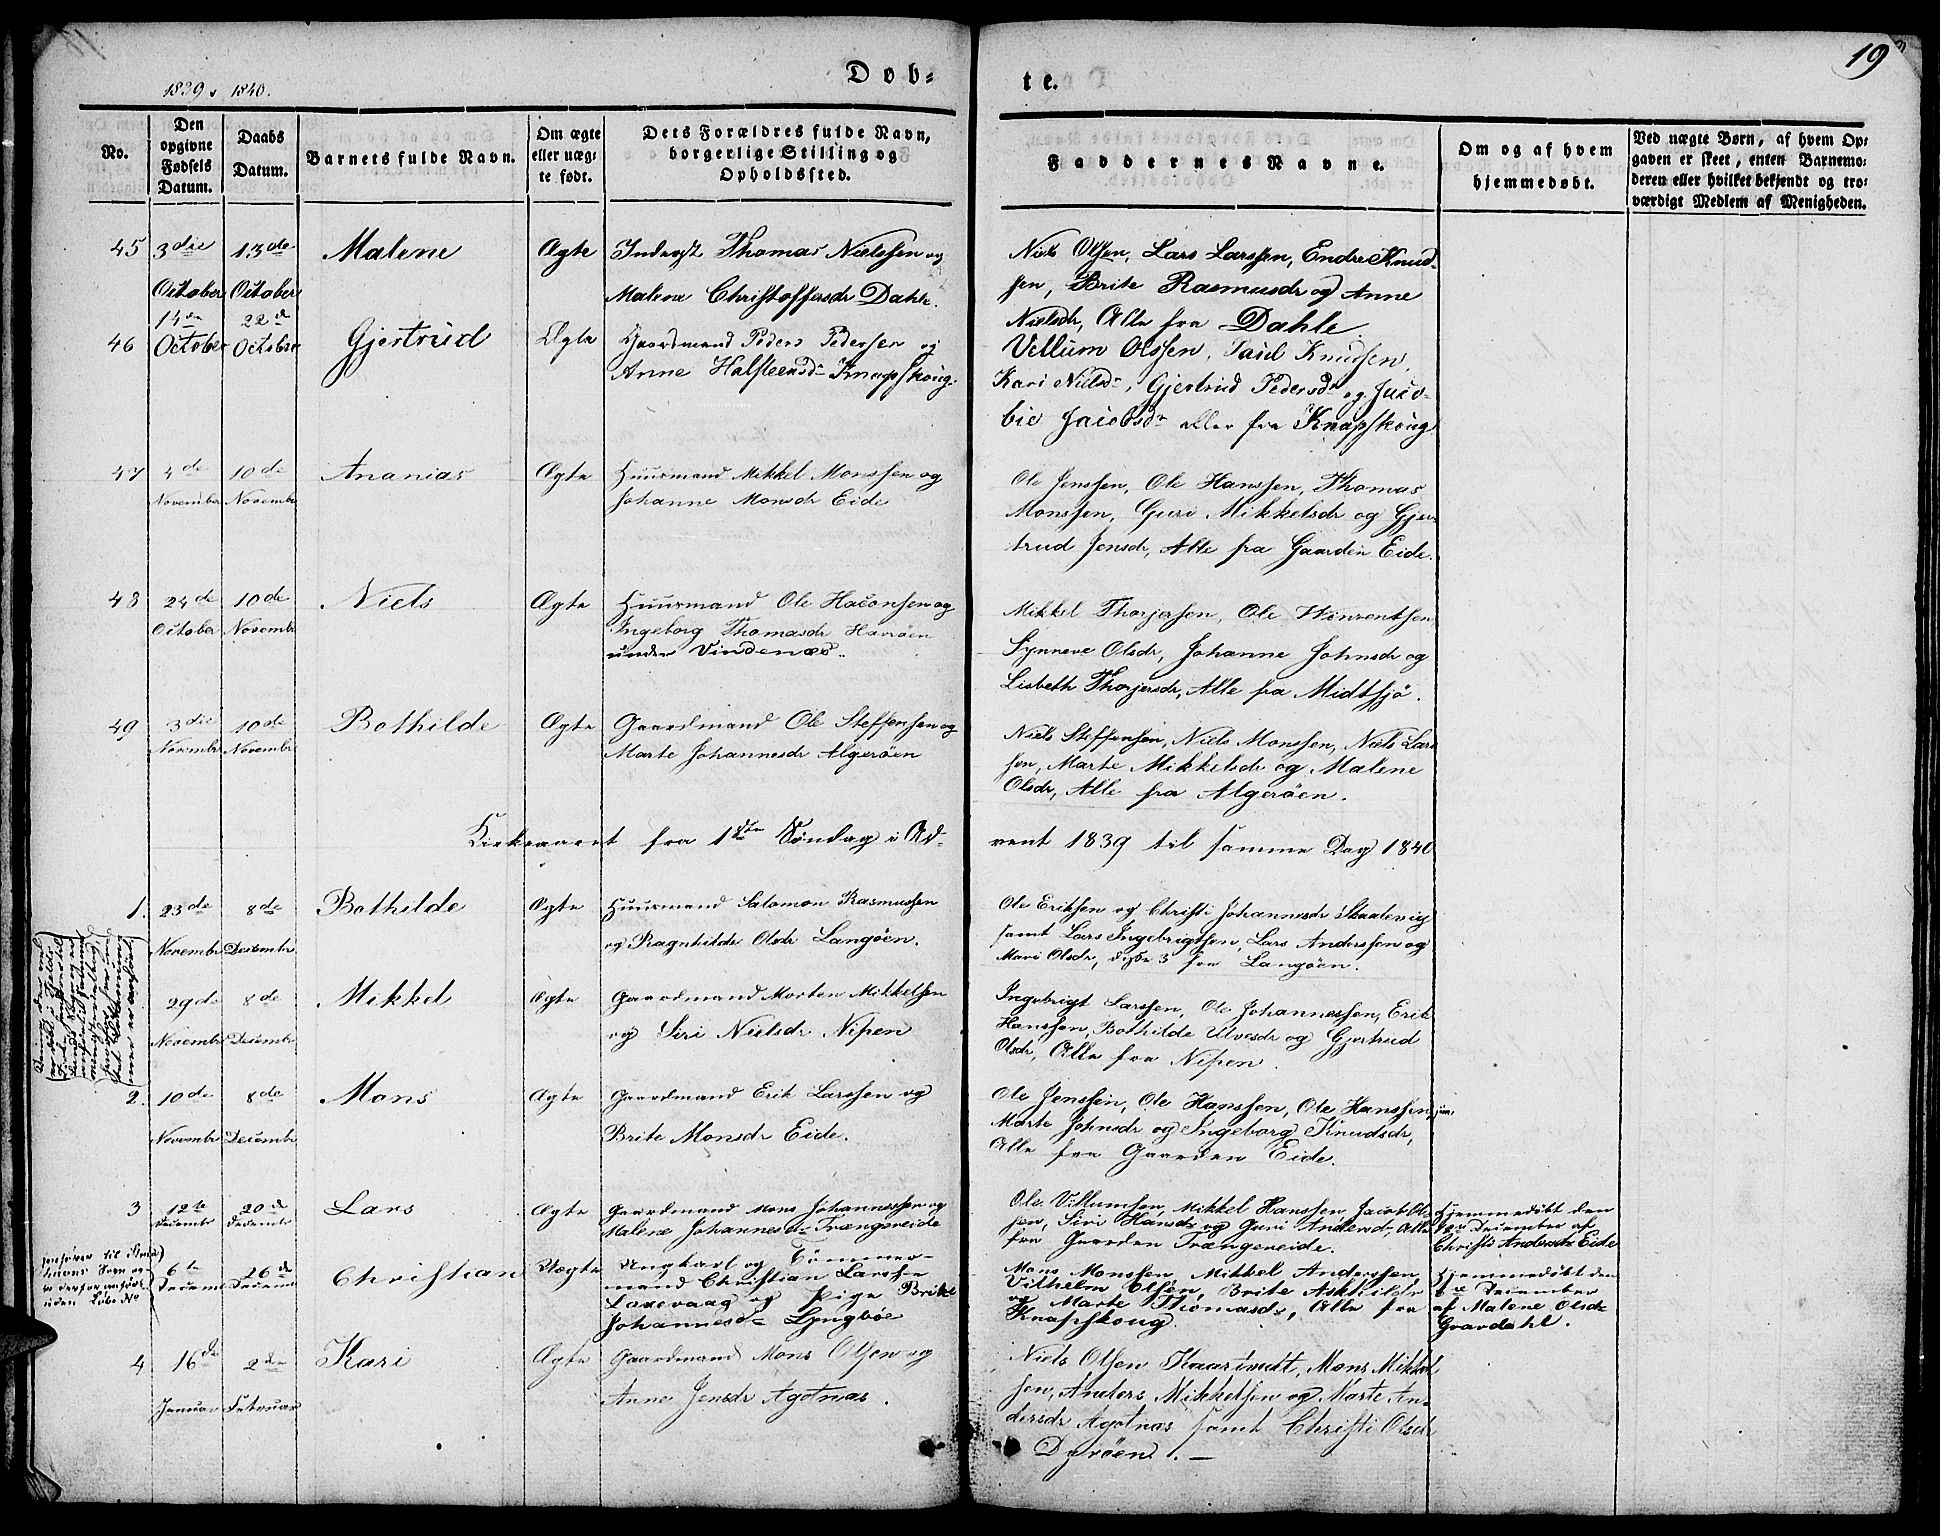 1839 & 1840.
Døb-
te.
19
No.
Den opgivne Fødsels Datum.
Daabs Datum.
Barnets fulde Navn.
Om ægte eller uæg-
te født.
Dets Forældres fulde Navn,
borgerlige Stilling og
Opholdssted.
Faddernes Navne.
Om og af hvem
hjemmedøbt.
Ved uægte Børn, af hvem Op-
gaven er skeet, enten Barnemo-
deren eller hvilket bekjendt og tro-
værdigt Medlem af Menigheden.
45 3die October 13de October Malene Ægte
Inderst Thomas Nielssen og
Malene Christoffersdr Dahle.
Niels Olsen, Lars Larssen, Endre Knud-
sen, Brite Rasmusdr og Anne
Nielsdr, Alle fra Dahle
46 14de October 22de October Gjertrud Ægte
Gaardmand Peder Pedersen og
Anne Halsteensdr Knapskoug.
Vellum Olssen, Paul Knudsen,
Kari Nielsdr, Gjertrud Pedersdr og Jaco-
bie Jacobsdr aller fra Knapskoug
47 4de November 10de Novembr Ananias Ægte
Huusmand Mikkel Monssen og
Johanne Monsdr Eide
Ole Jenssen, Ole Hanssen, Thomas
Monssen, Guri Mikkelsdr og Gjer-
trud Jensdr, Alle fra Gaarden Eide.
48 24de October 10de Novembr Niels Ægte
Huusmand Ole Haconsen og
Ingeborg Thomasdr Havrøen
under Vindenæs.
Mikkel Thorjersen, Ole Winzentsen
Synneve Olsdr, Johanne Johnsdr og
Lisbeth Thorjersdr, Alle fra Midtsjø.
49 3die Novembr 10de Novembr Bothilde Ægte
Gaardmand Ole Steffensen og
Marte Johannesdr Algerøen
Niels Steffensen, Niels Monssen, Niels Lars-
sen, Marte Mikkelsdr og Malene
Olsdr, Alle fra Algerøen.
Kirkeaaret fra 1ste Søndag i Ad-
vent 1839 til samme Dag 1840
1. 23de Novembr 8de Decembr Bothilde Ægte
Huusmand Salomon Rasmussen
og Ragnhilde Olsdr Langøen.
Ole Eriksen og Christi Johannesdr Skaalevig
samt Lars Ingebrigtsen, Lars Anderssen og
Mari Olsdr, disse 3 fra Langøen.
29de Novembr 8de Decembr Mikkel Ægte
Gaardmand Morten Mikkelsen
og Siri Nielsdr Nipen
Ingebrigt Larssen, Ole Johannessen, Erik
Hanssen, Bothilde Ulvesdr og Gjertrud
Olsdr, Alle fra Nipen.
2. 10de Novembr 8de Decembr Mons Ægte
Gaardmand Erik Larssen og
Brite Monsdr Eide.
Ole Jenssen, Ole Hanssen, Ole Hanssen jun.
Marte Johnsdr og Ingeborg Knudsdr,
Alle fra Gaarden Eide.
3 12te Decembr 20de Decembr Lars Ægte
Gaardmand Mons Johannessen og
Malene Johannesdr Trængereide
Ole Villumsen, Mikkel Hanssen, Jacob Ol-
sen, Siri Hansdr og Guri Andersdr, Alle
fra Gaarden Trængereide.
Hjemmedøbt den
Decembr af
Christi Andersdr Eide
uden Løbe No
6te Decembr 26de Decembr Christian Uægte
Ungkarl og Tømmer-
mand Christian Larssen
Laxevaag og Pige Brite
Johannesdr Lyngbøe
Mons Monssen, Mikkel Anderssen,
Vilhelm Olsen, Brite Askildsdr
og Marte Thomasdr, Alle fra
Knapskoug.
Hjemmedøbt den
Decembr
af Malene Olsdr
Gravdahl.
4 16de Januar 2den Februar Kari Ægte
Gaardmand Mons Olsen og
Anne Jensdr Agotnæs.
Niels Olsen Kaartvedt, Mons Mikkel-
sen, Anders Mikkelsen og Marte An-
dersdr Agotnæs samt Christi Olsdr
Dyrøen.